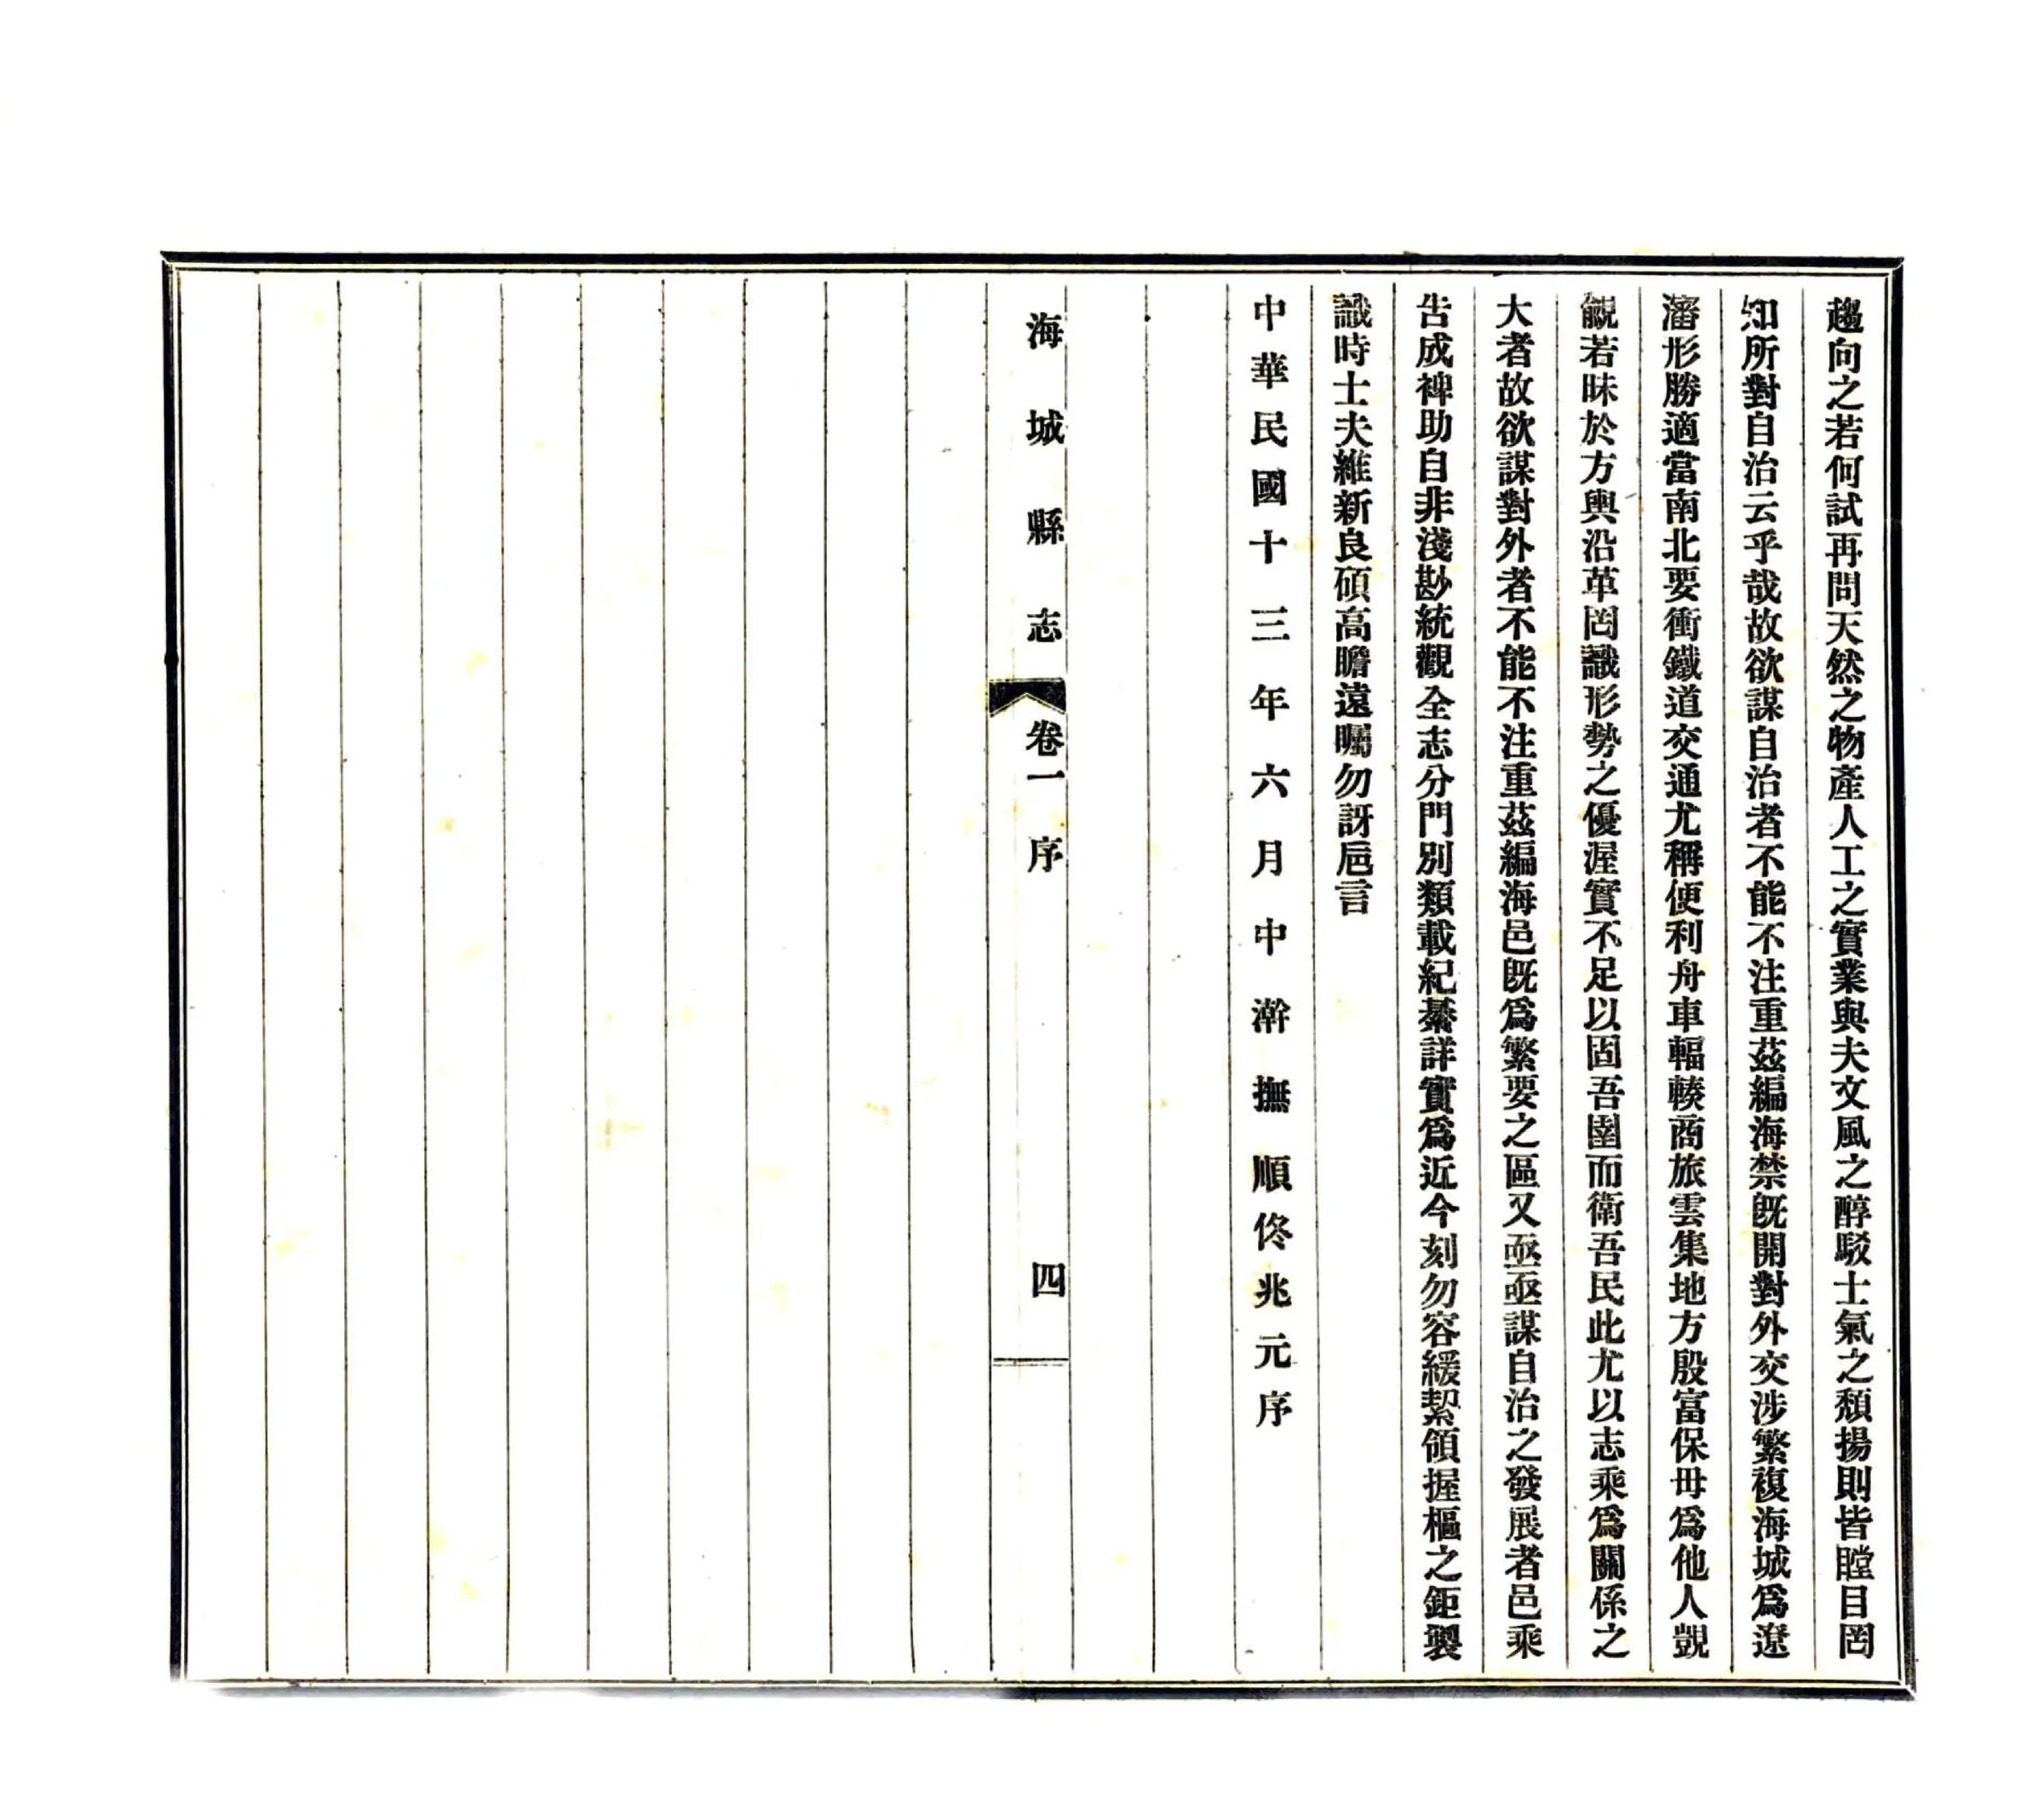 趨向之若何試再問天然之物產人工之實業與夫文風之醇駁士氣之頹揚則皆瞠目罔
知所對自治云乎哉故欲謀自治者不能不注重茲編海禁既開對外交涉繁複海城爲遼
瀋形勝適當南北要衝鐵道交通尤稱便利舟車輻輳商旅雲集地方殷富保毋爲他人覬
覦若昧於方輿沿革罔識形勢之優渥實不足以固吾圉而衛吾民此尤以志乘爲關係之
大者故欲謀對外者不能不注重茲編海邑既爲繁要之區又亟亟謀自治之發展者邑乘
告成裨助自非淺尠統觀全志分門別類載紀綦詳實爲近今刻勿容緩挈領握樞之鉅製
識時士夫維新良碩高瞻遠矚勿訝巵言
中華民國十三年六月中澣撫順佟兆元序
海城縣志
卷一 序
四